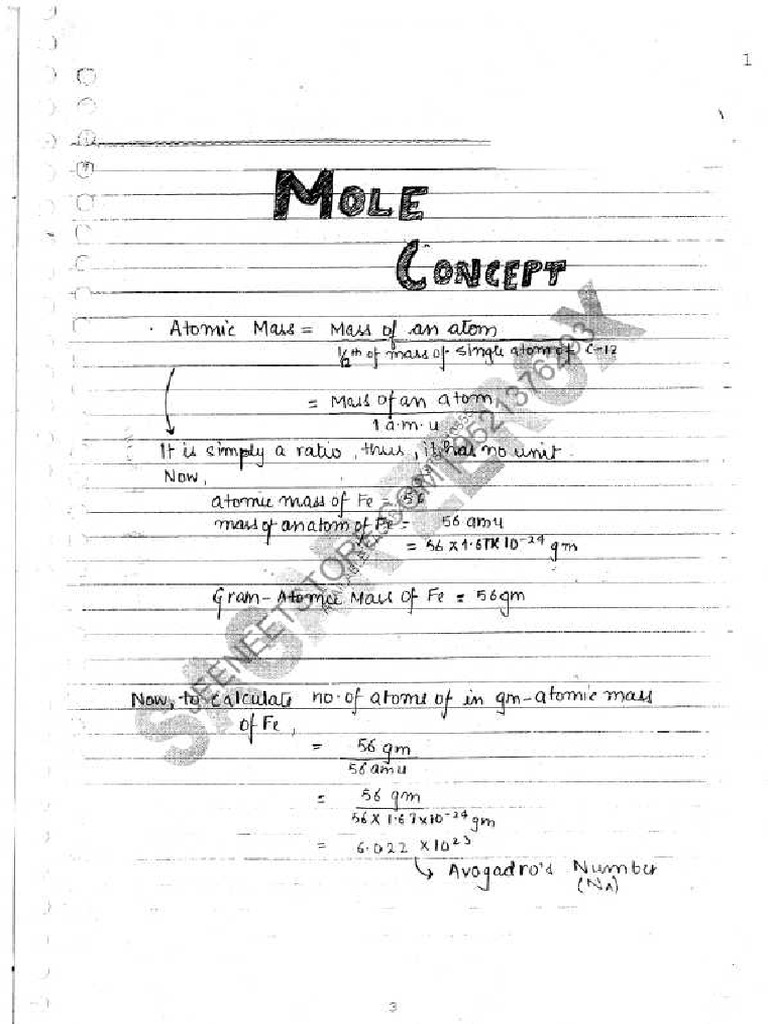 1
MOLE
CONCEPT
· Atomic Mass = Mass of an atom
1/12th of mass of single atom of C-12
= Mass of an atom
1 a.m.u
It is simply a ratio, thus, it has no unit.
Now,
atomic mass of Fe = 56
mass of an atom of Fe = 56 amu
= 56 × 1.67 × 10⁻²⁴ gm
Gram-Atomic Mass of Fe = 56gm
Now, to calculate no. of atoms of in gm-atomic mass
of Fe,
= 56 gm
56 amu
= 56 gm
56 × 1.67 × 10⁻²⁴ gm
= 6.022 × 10²³
↳ Avogadro's Number
(NA)
3
JEENEETSTORE.COM | 9521376203